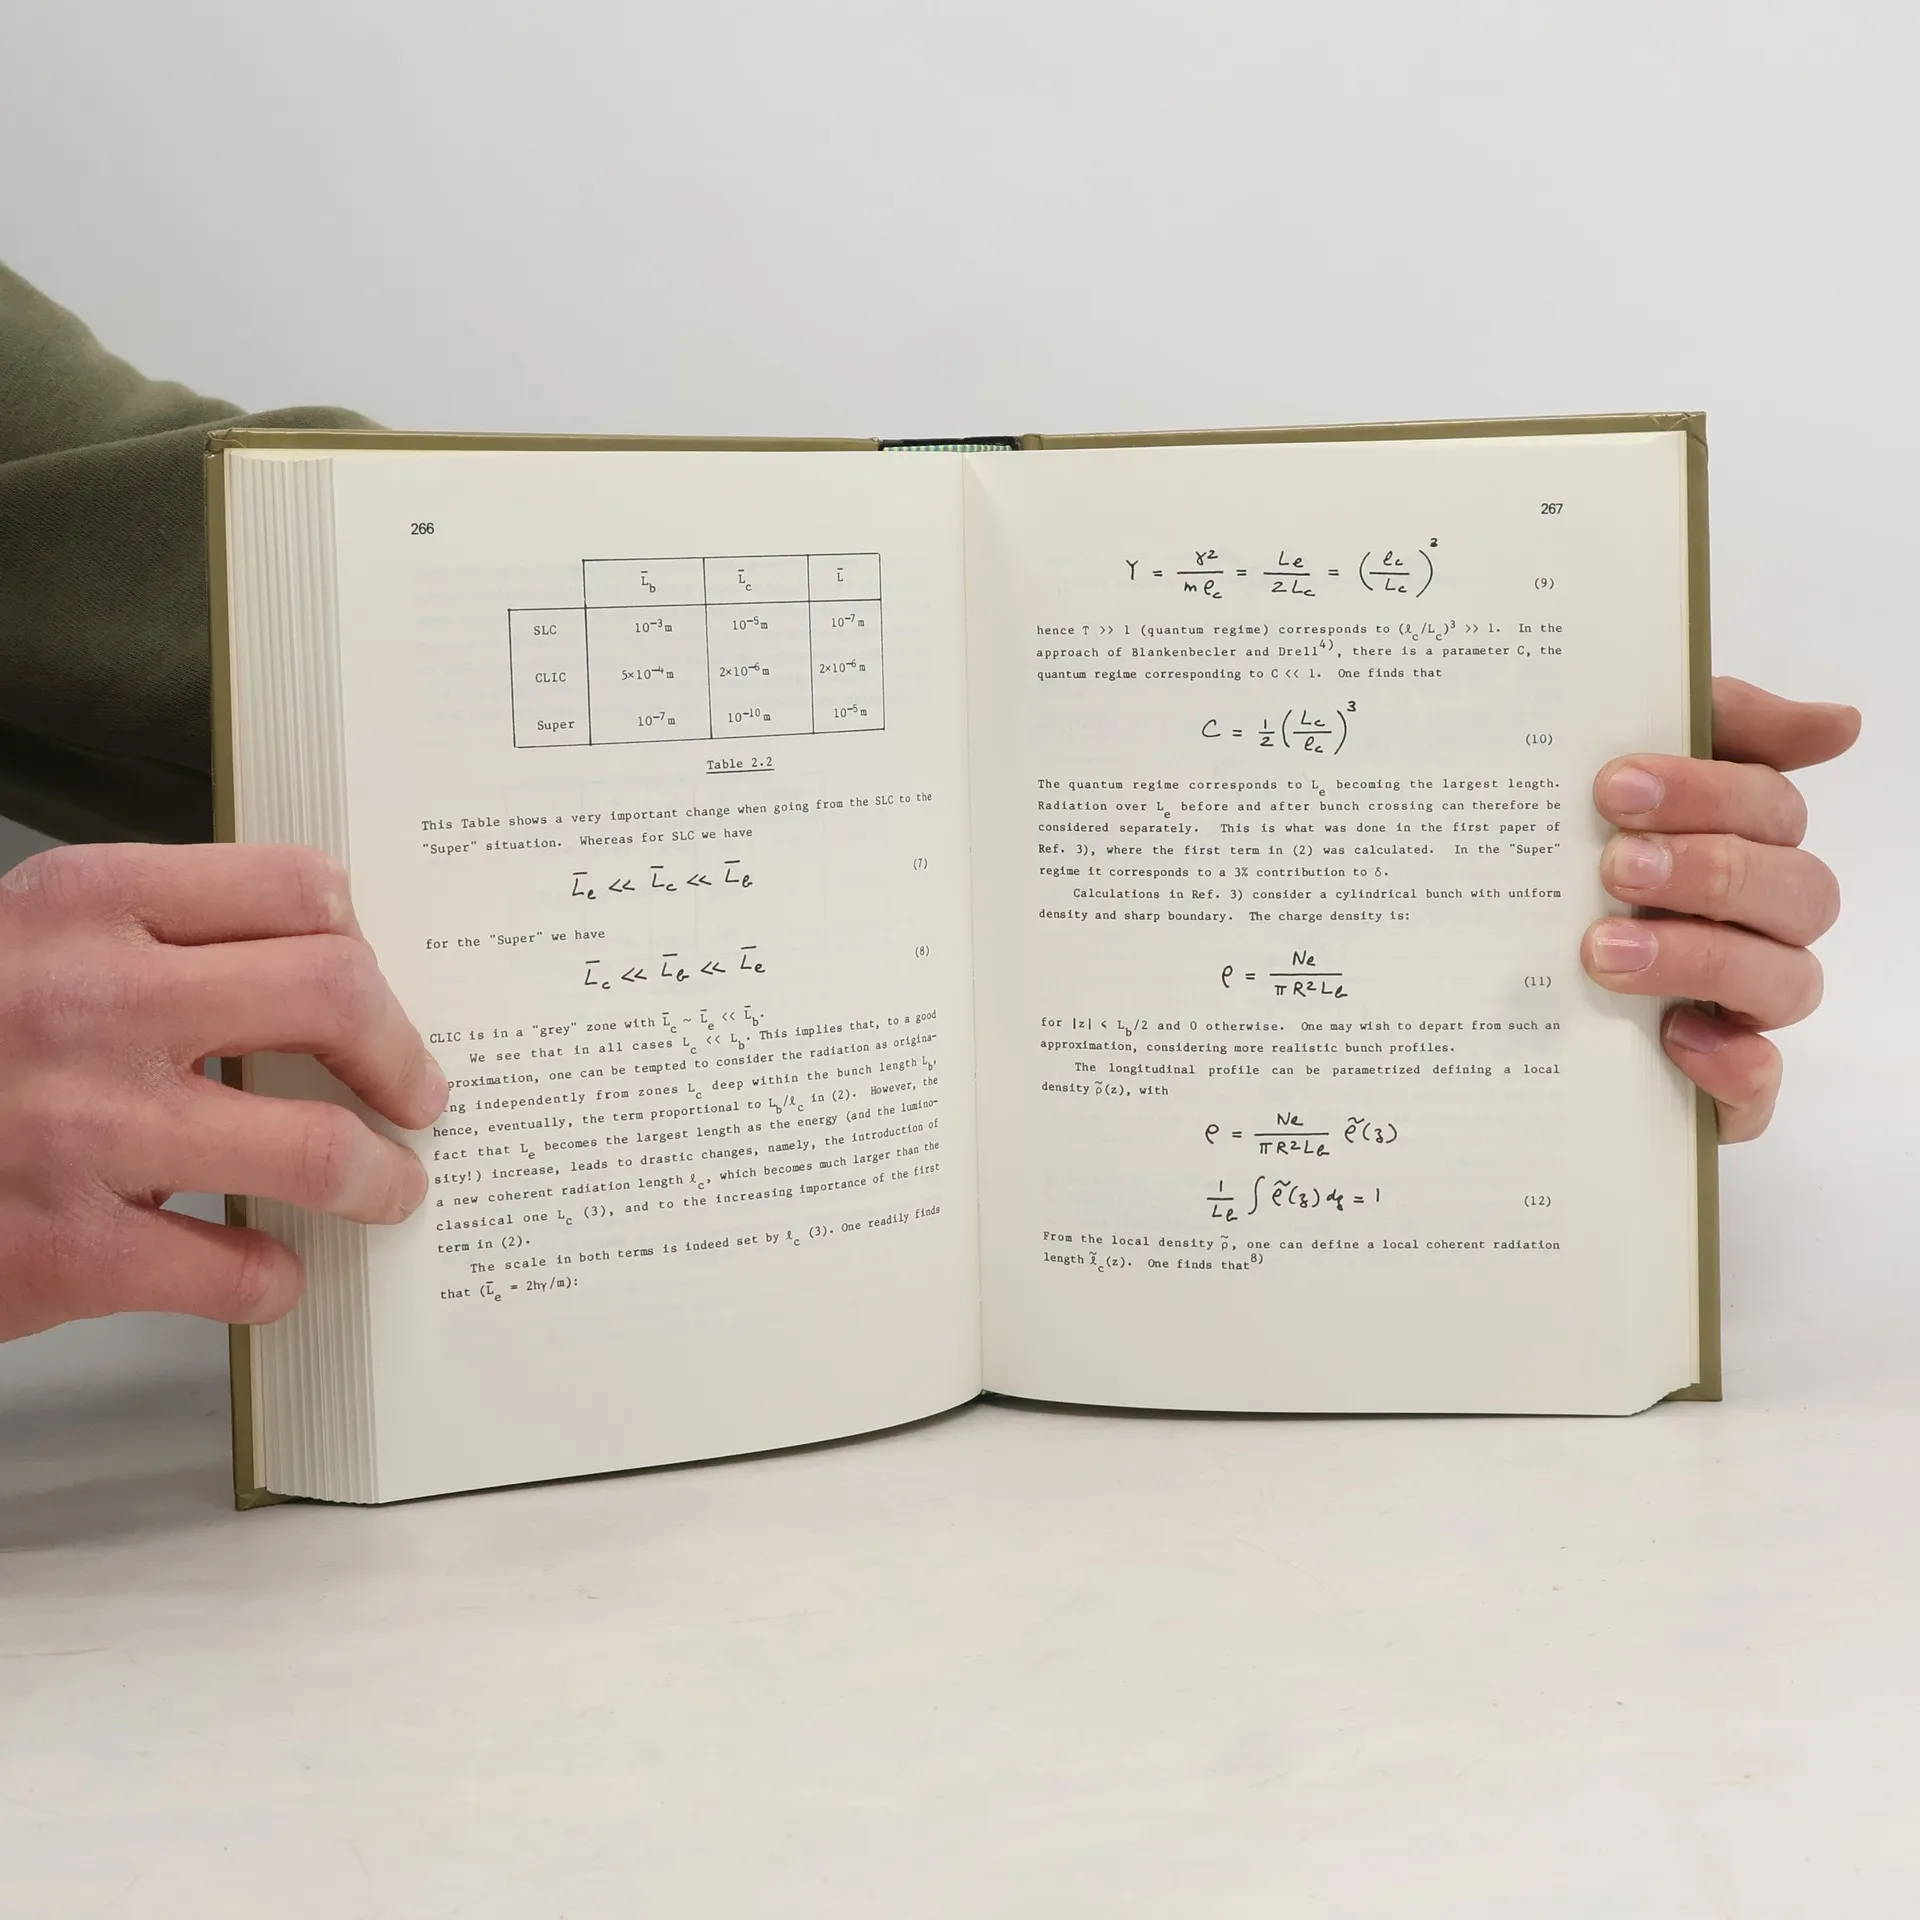 266
L̄b L̄c L̄
SLC 10⁻³m 10⁻⁵m 10⁻⁷m
CLIC 5x10⁻⁴m 2x10⁻⁶m 2x10⁻⁶m
Super 10⁻⁷m 10⁻¹⁰m 10⁻⁵m
Table 2.2
This Table shows a very important change when going from the SLC to the
"Super" situation. Whereas for SLC we have
L̄e << L̄c << L̄b (7)
for the "Super" we have
L̄c << L̄b << L̄e (8)
CLIC is in a "grey" zone with L̄c ~ L̄e << L̄b.
We see that in all cases Lc << Lb. This implies that, to a good
proximation, one can be tempted to consider the radiation as origina-
ng independently from zones Lc deep within the bunch length Lb,
hence, eventually, the term proportional to Lb/ℓc in (2). However, the
fact that Le becomes the largest length as the energy (and the lumino-
sity!) increase, leads to drastic changes, namely, the introduction of
a new coherent radiation length ℓc, which becomes much larger than the
classical one Lc (3), and to the increasing importance of the first
term in (2).
The scale in both terms is indeed set by ℓc (3). One readily finds
that (L̄e = 2hγ/m):
267
Υ = γ²/mρc = Le/2Lc = (ℓc/Lc)³ (9)
hence T >> 1 (quantum regime) corresponds to (ℓc/Lc)³ >> 1. In the
approach of Blankenbecler and Drell⁴⁾, there is a parameter C, the
quantum regime corresponding to C << 1. One finds that
C = 1/2 (Lc/ℓc)³ (10)
The quantum regime corresponds to Le becoming the largest length.
Radiation over Le before and after bunch crossing can therefore be
considered separately. This is what was done in the first paper of
Ref. 3), where the first term in (2) was calculated. In the "Super"
regime it corresponds to a 3% contribution to δ.
Calculations in Ref. 3) consider a cylindrical bunch with uniform
density and sharp boundary. The charge density is:
ρ = Ne/πR²Lb (11)
for |z| < Lb/2 and 0 otherwise. One may wish to depart from such an
approximation, considering more realistic bunch profiles.
The longitudinal profile can be parametrized defining a local
density ρ̃(z), with
ρ = Ne/πR²Lb ρ̃(z)
1/Lb ∫ ρ̃(z) dz = 1 (12)
From the local density ρ̃, one can define a local coherent radiation
length ℓ̃c(z). One finds that⁸⁾